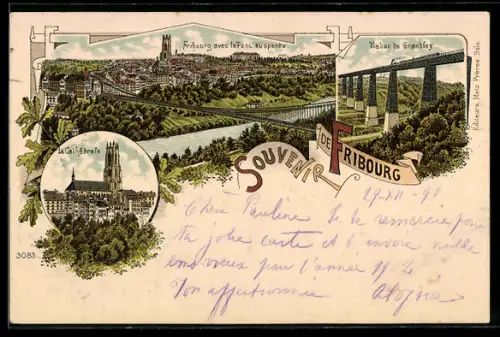 Fribourg avec le Pont suspendu
Viaduc de Grandfey
La Cathédrale
SOUVENIR DE FRIBOURG
Editeurs, Metz Frères, Bâle
3083
Chère Pauline Je te remercie pour
ta jolie carte et t'envoie mille
bons voeux pour l'année 1902
Ton affectionnée